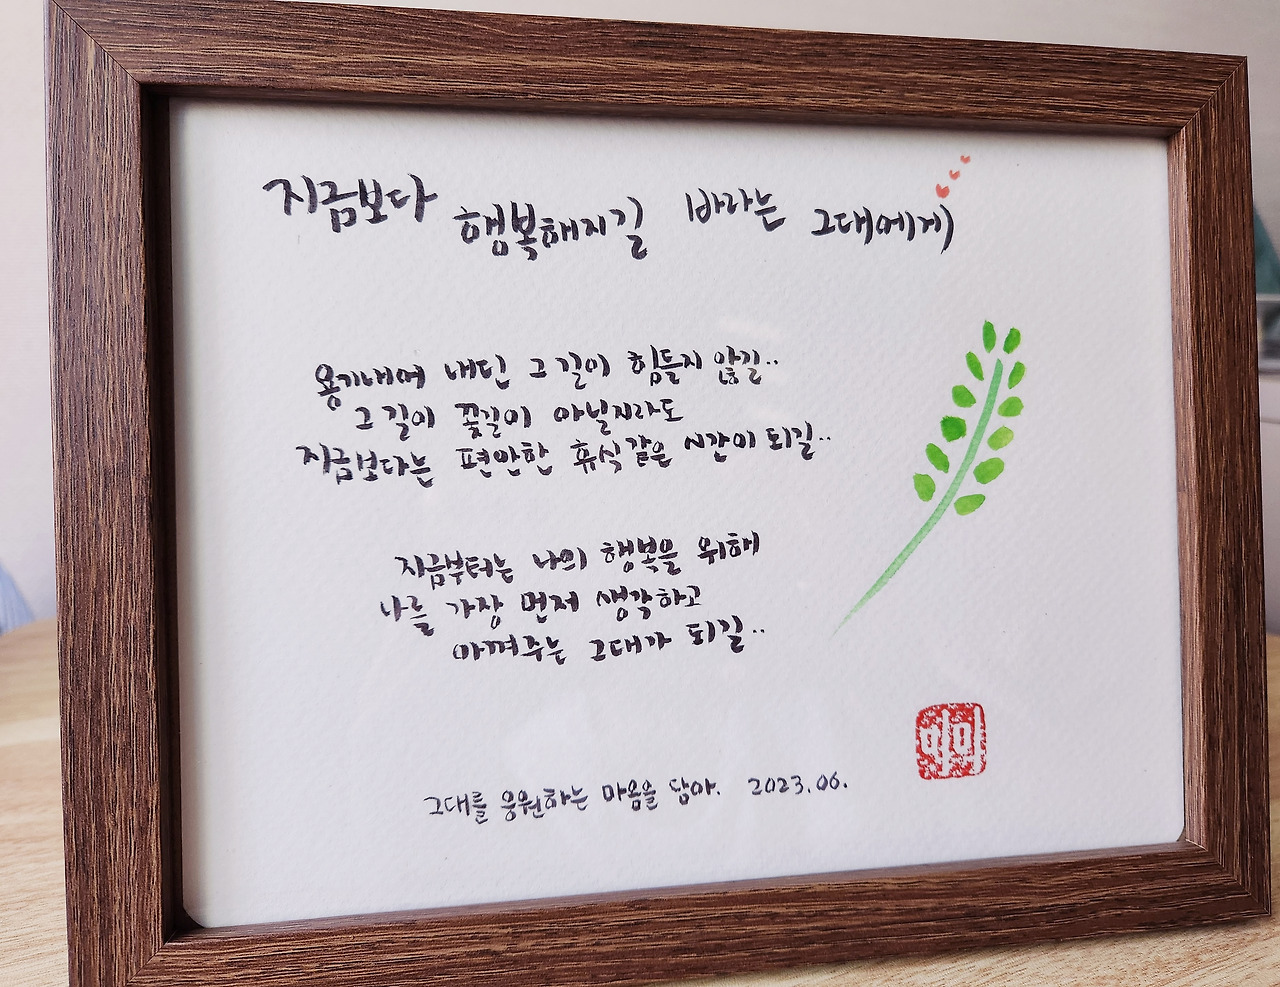 지금보다 행복해지길 바라는 그대에게
용기내어 내딘 그 길이 힘들지 않길..
그 길이 꽃길이 아닐지라도
지금보다는 편안한 휴식같은 시간이 되길..
지금부터는 나의 행복을 위해
나를 가장 먼저 생각하고
아껴주는 그대가 되길..
그대를 응원하는 마음을 담아. 2023.06.